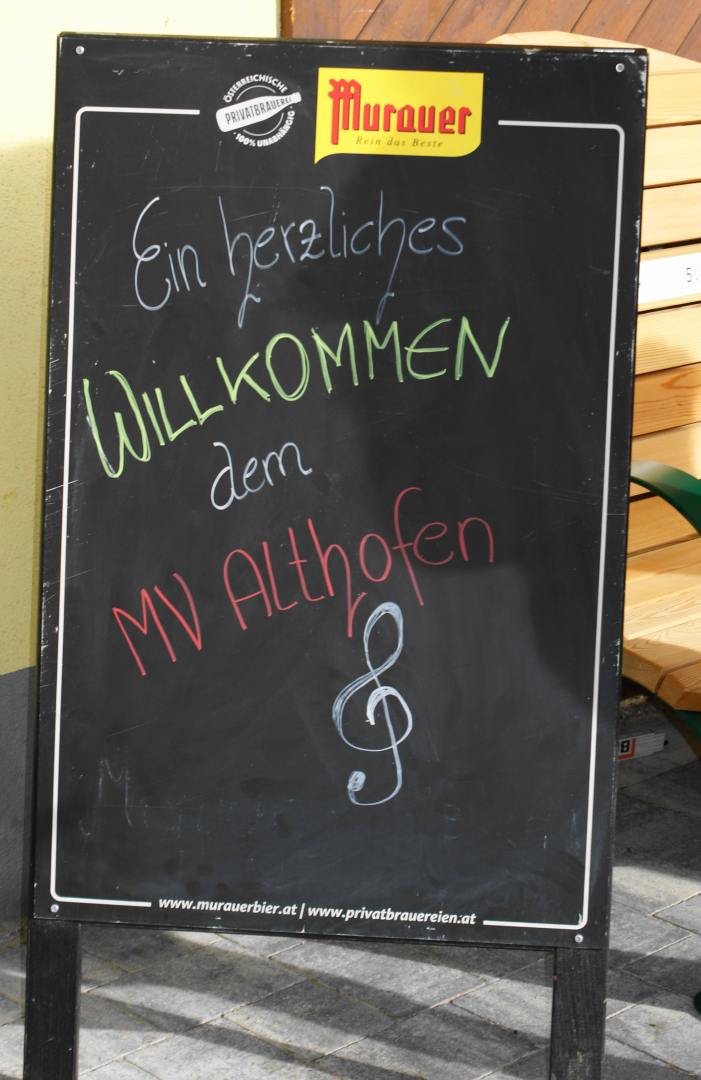 ÖSTERREICHISCHE
PRIVATBRAUEREI
100% UNABHÄNGIG
Murauer
Rein das Beste
Ein herzliches
WILLKOMMEN
dem
MV Althofen
www.murauerbier.at | www.privatbrauereien.at
5.
B